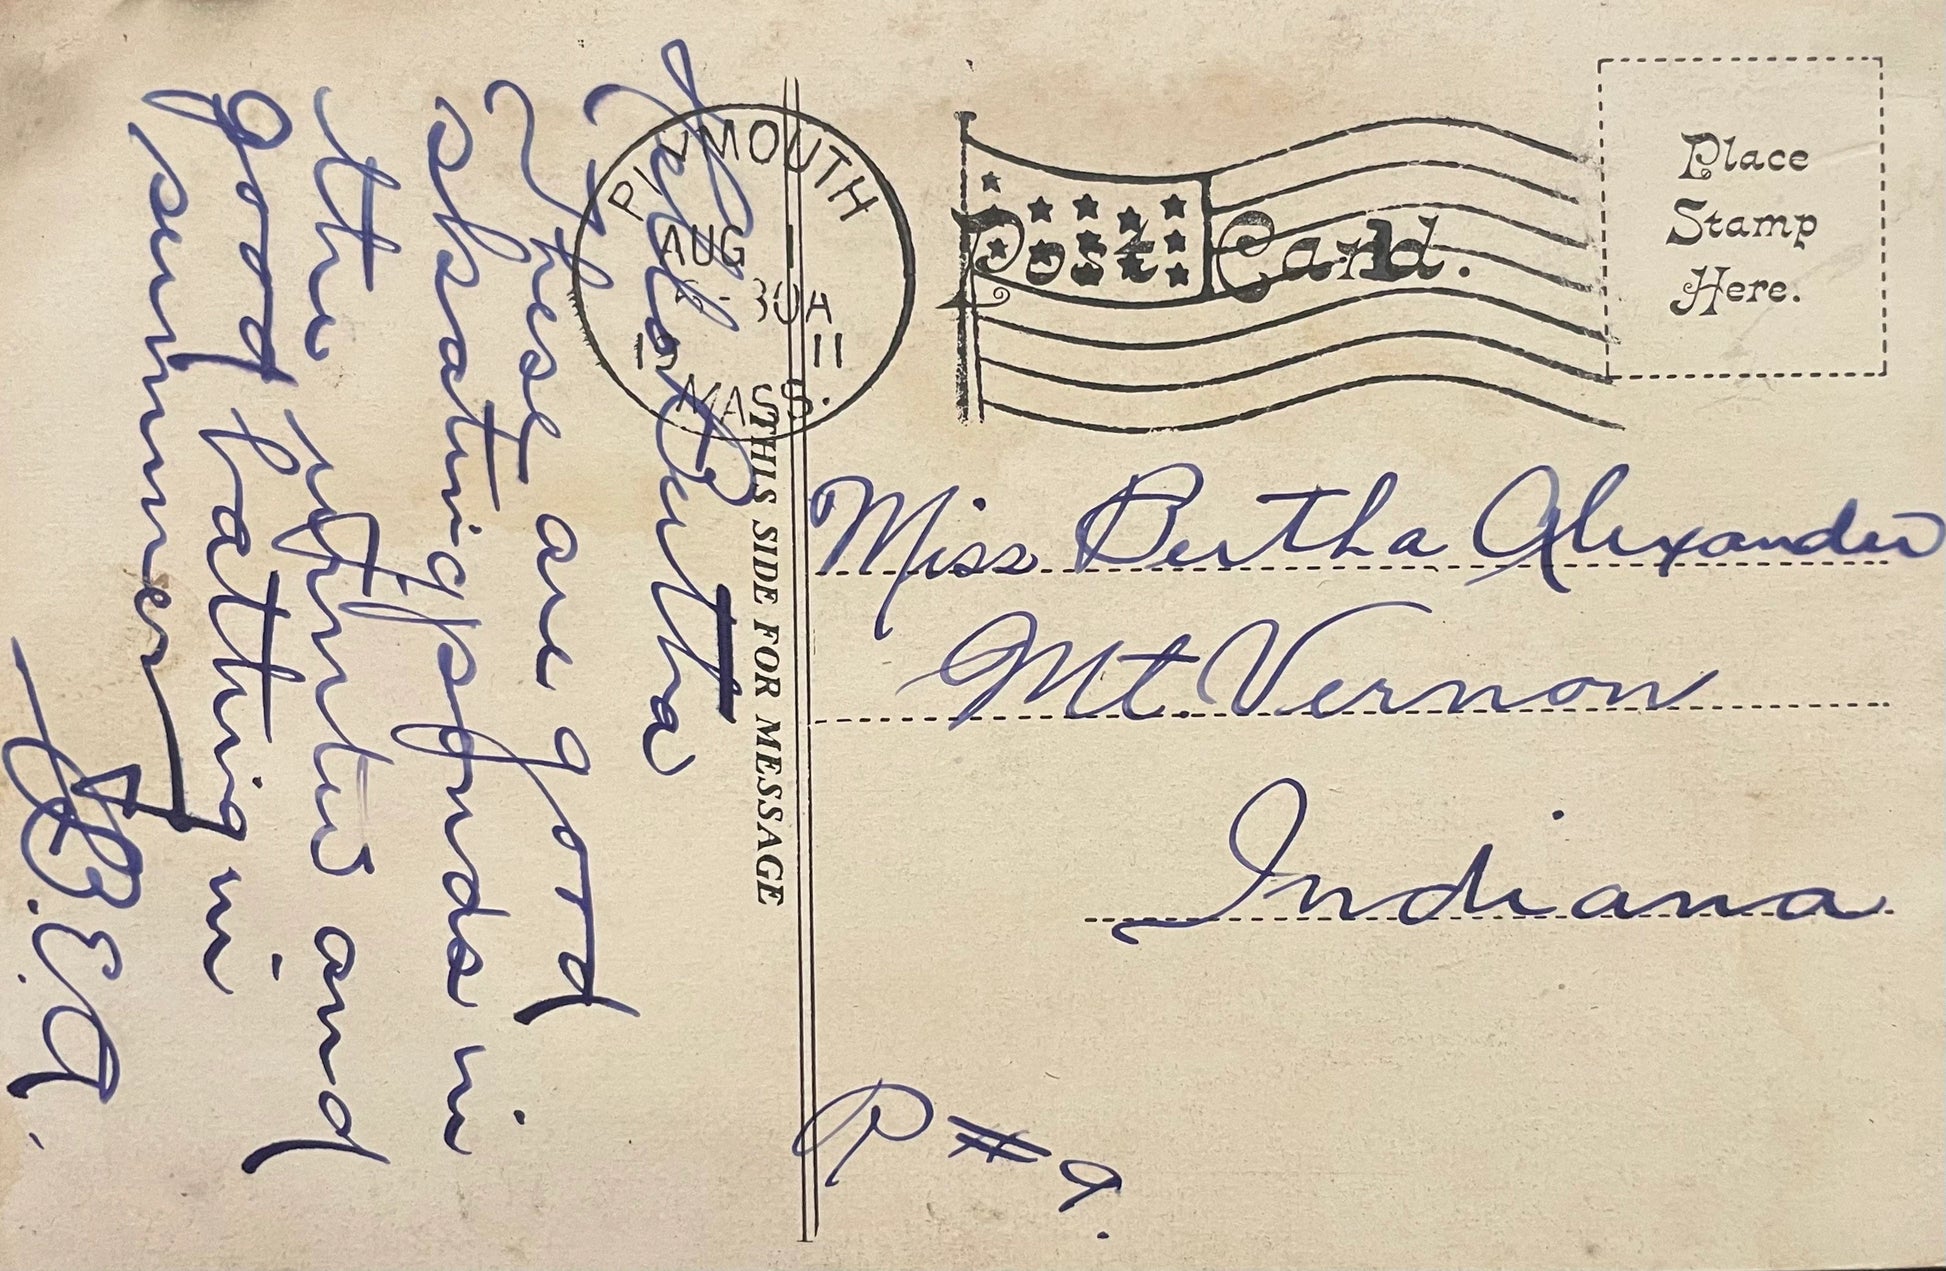 Hello Bertha
These are good
skating ponds in
the winter and
good bathing in
summer
B.E.A.
THIS SIDE FOR MESSAGE
PLYMOUTH
AUG 1
30A
19 11
MASS.
Post Card.
Place
Stamp
Here.
Miss Bertha Alexander
Mt. Vernon
Indiana
R #9.